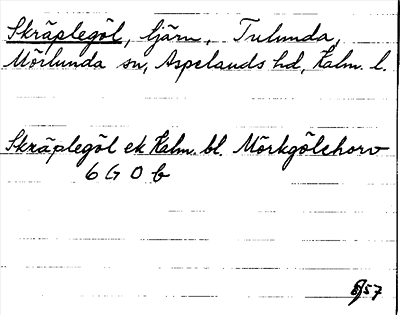 Skräplegöl, tjärn, Tulunda,
Mörlunda sn, Aspelands hd, Kalm. l.
Skräplegöl ek Kalm. bl. Mörkgölshorv
6 G 0 b
8/57